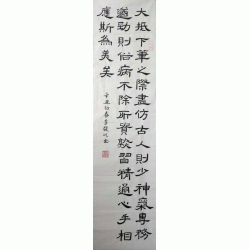 大抵下筆之際盡仿古人則少神氣專務
遒勁則俗病不除所貴熟習精通心手相
應斯為美矣
辛丑初春李